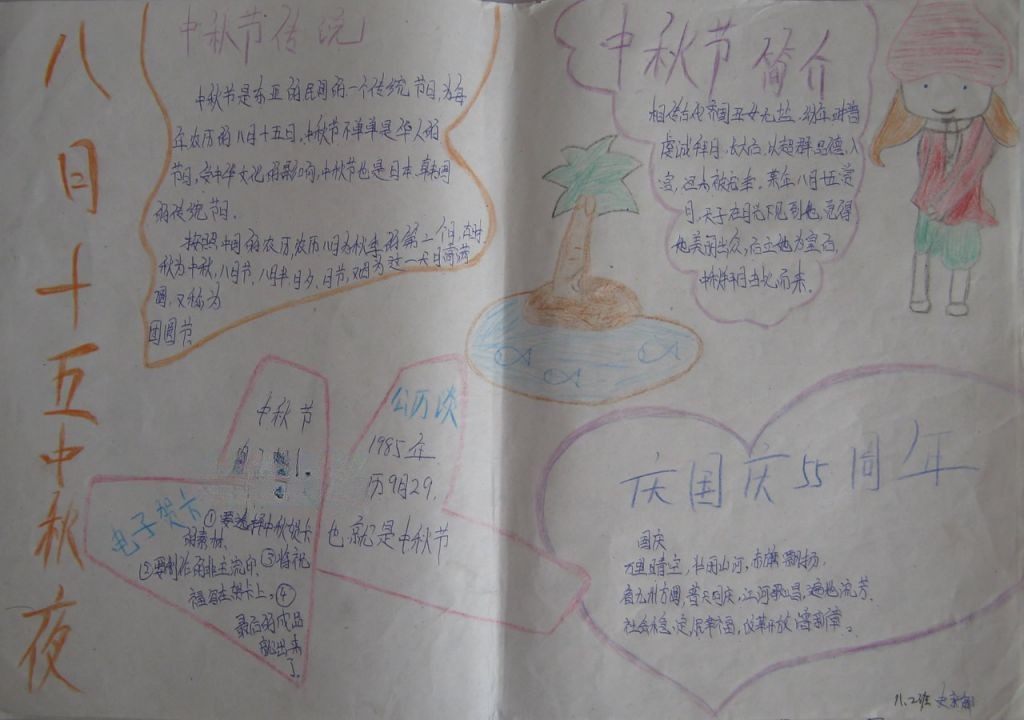 八月十五中秋夜
中秋节传统
中秋节是东亚的民间的一个传统节日,为每
年农历的八月十五日,中秋节不单单是华人的
节日,受中华文化的影响,中秋节也是日本、韩国
的传统节日。
按照中国的农历,农历八月为秋季的第二个月,古时
称为中秋,八月节,八月半,月夕,月节,又因为这一天月亮满
圆,又称为
团圆节
中秋节简介
相传古代齐国丑女无盐,幼年时曾
虔诚拜月,长大后,以超群品德,入
宫,但未被宠幸。某年八月十五赏
月,天子在月光下见到她,觉得
她美丽出众,后立她为皇后,
中秋拜月由此而来。
中秋节
公历谈
1985年
历9月29.
也就是中秋节
电子贺卡
①要选择中秋贺卡
的素材.
②要制作的非主流印. ③将祝
福写在贺卡上。④
最后的成品
就出来
了
庆国庆55周年
国庆
万里晴空,壮丽山河,赤旗飘扬,
看九州方圆,普天同庆,江河歌唱,遍地流芳。
社会稳定,民幸福,改革开放谱新章。
八.2班